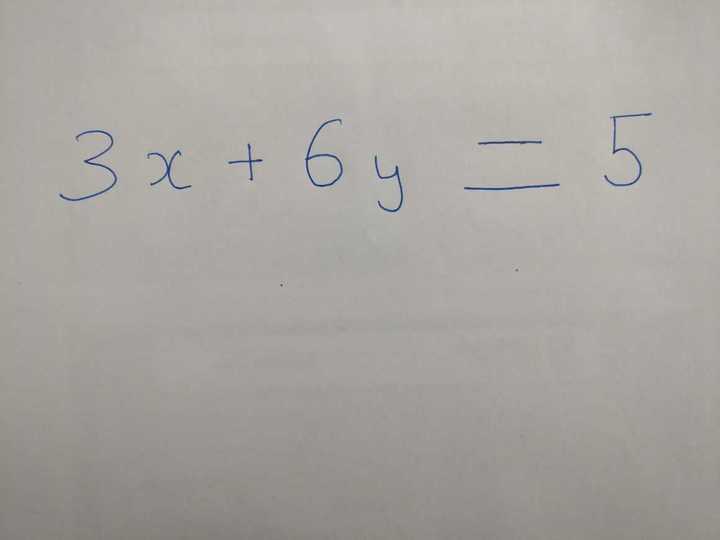 3x + 6y = 5